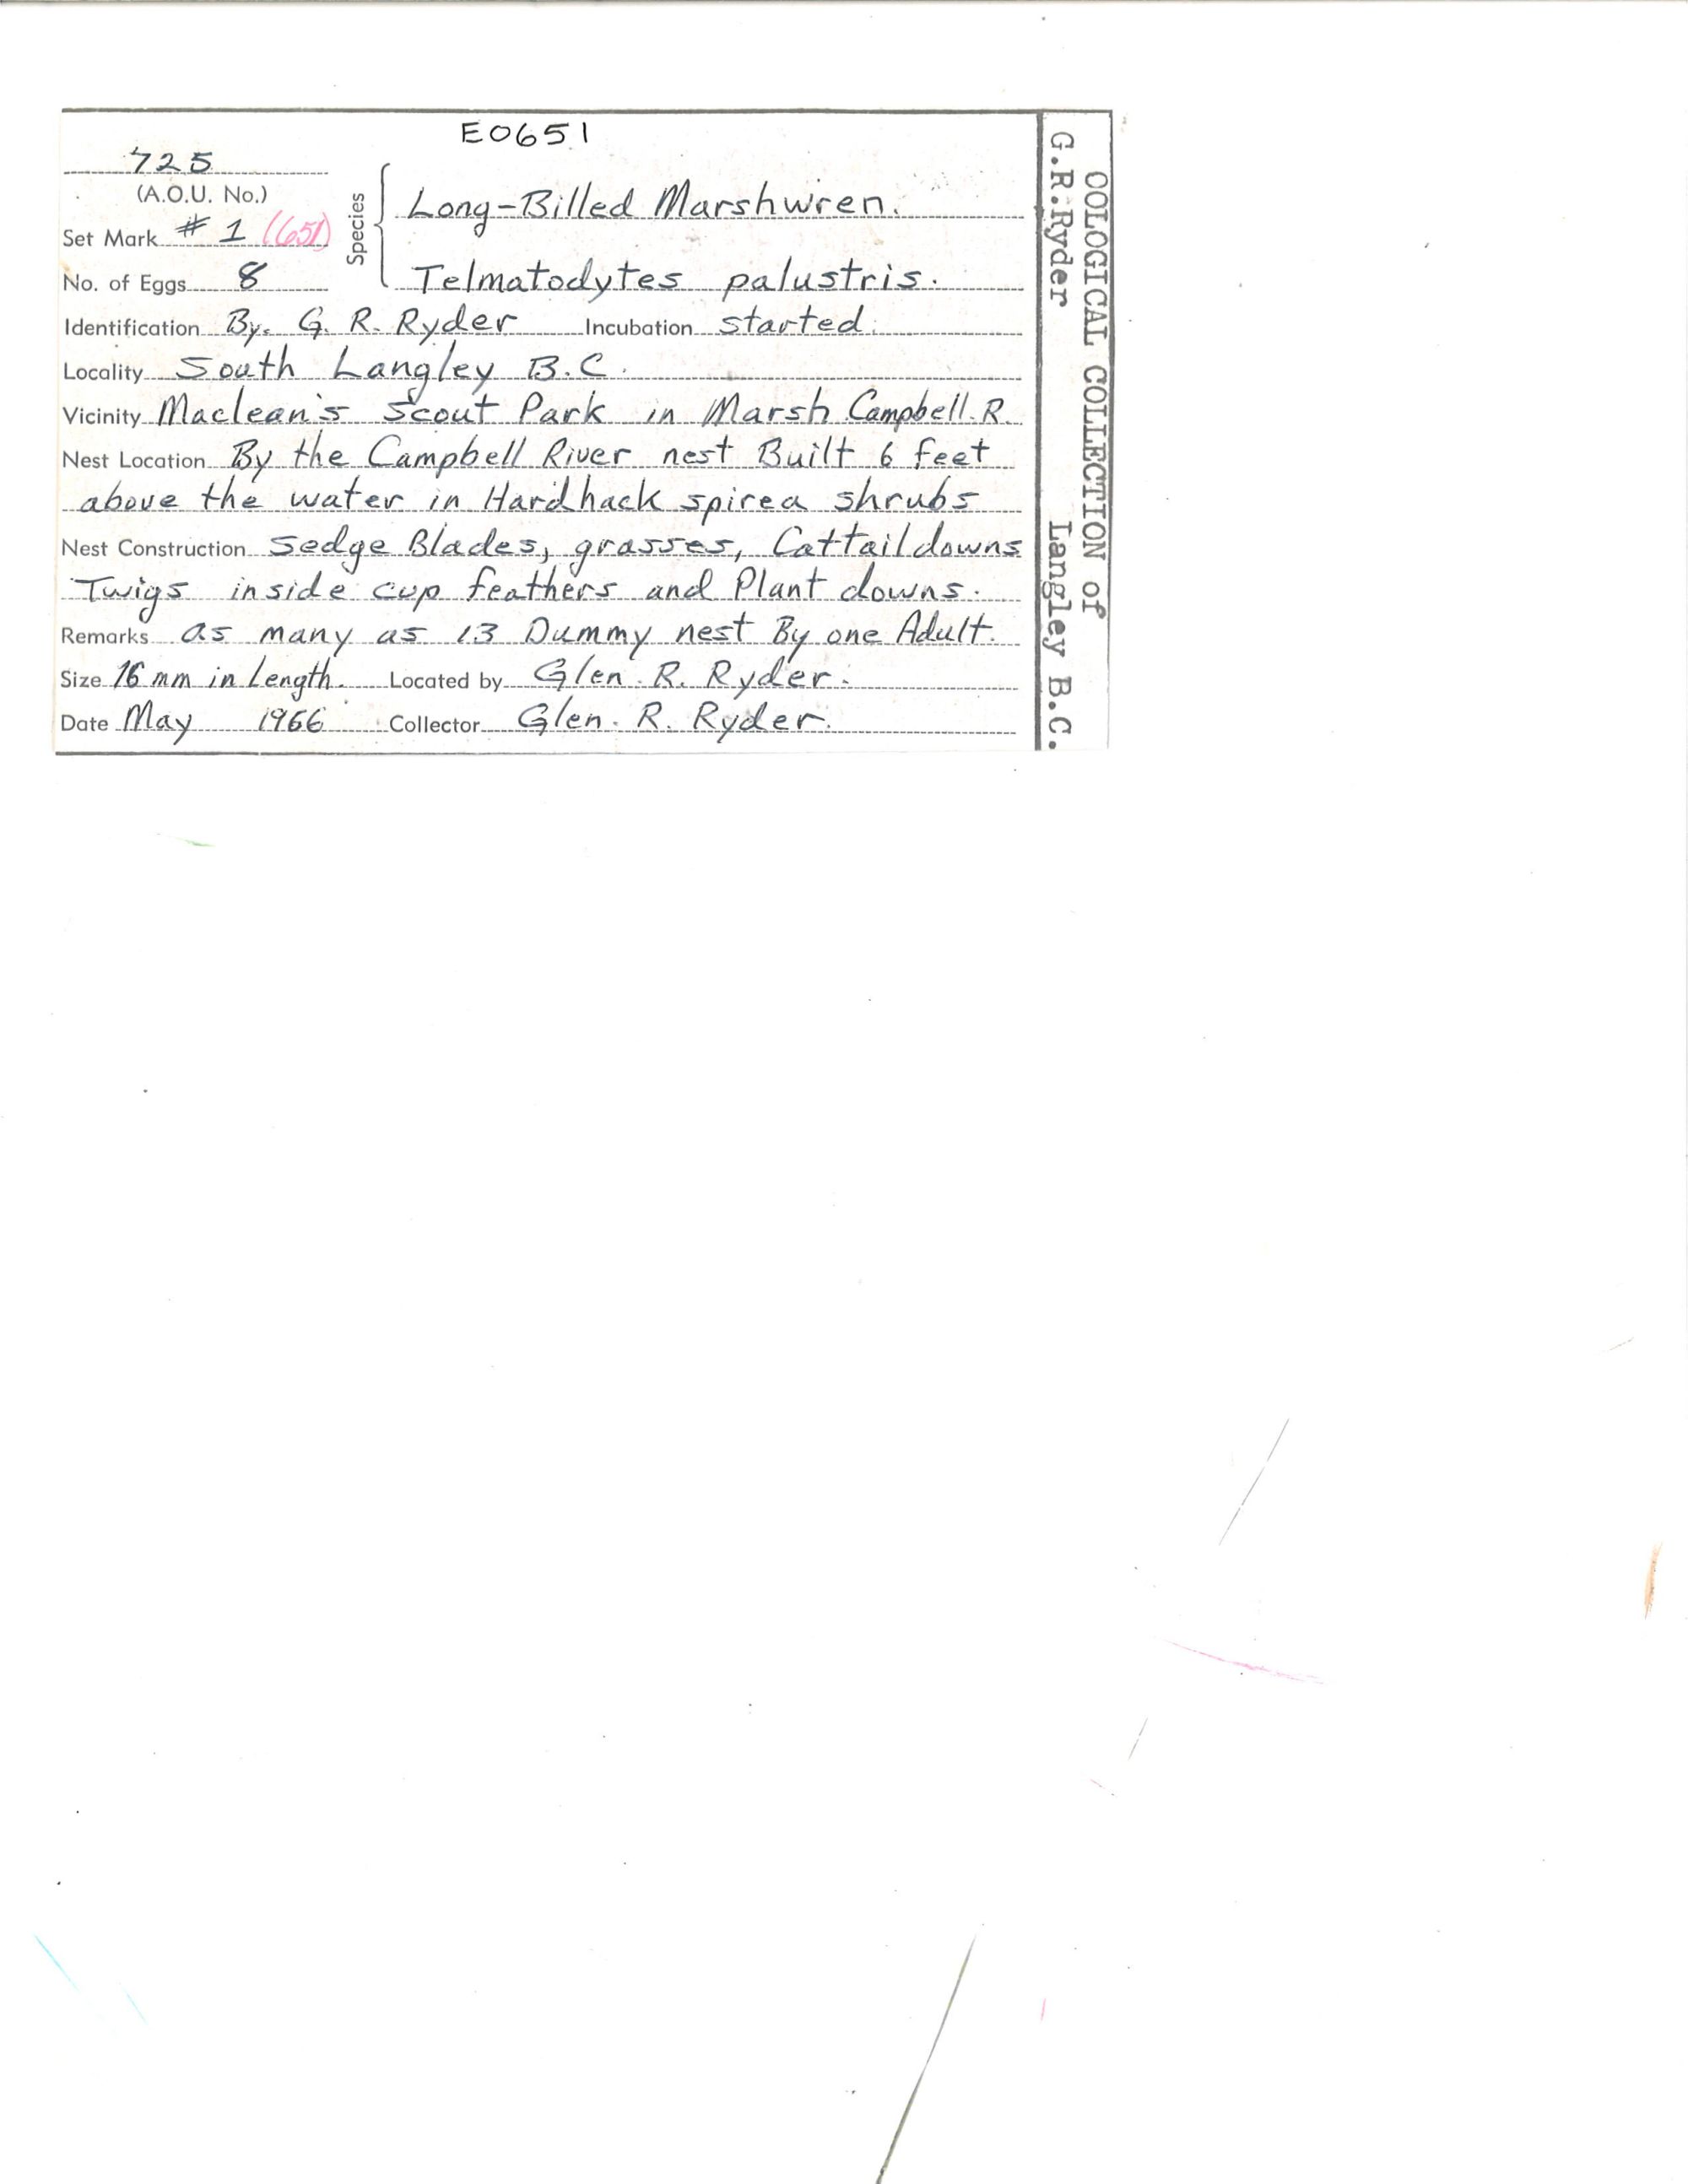 E0651
725
(A.O.U. No.)
Set Mark # 1 (651)
No. of Eggs 8
Species
Long-Billed Marshwren.
Telmatodytes palustris.
Identification By. G. R. Ryder Incubation started.
Locality South Langley B.C.
Vicinity Maclean's Scout Park in Marsh Campbell. R.
Nest Location By the Campbell River nest Built 6 feet
above the water in Hardhack spirea shrubs
Nest Construction Sedge Blades, grasses, Cattail downs
Twigs inside cup feathers and Plant downs.
Remarks as many as 13 Dummy nest By one Adult.
Size 16 mm in Length. Located by Glen. R. Ryder.
Date May 1966 Collector Glen. R. Ryder.
OOLOGICAL COLLECTION of
G.R.Ryder Langley B.C.